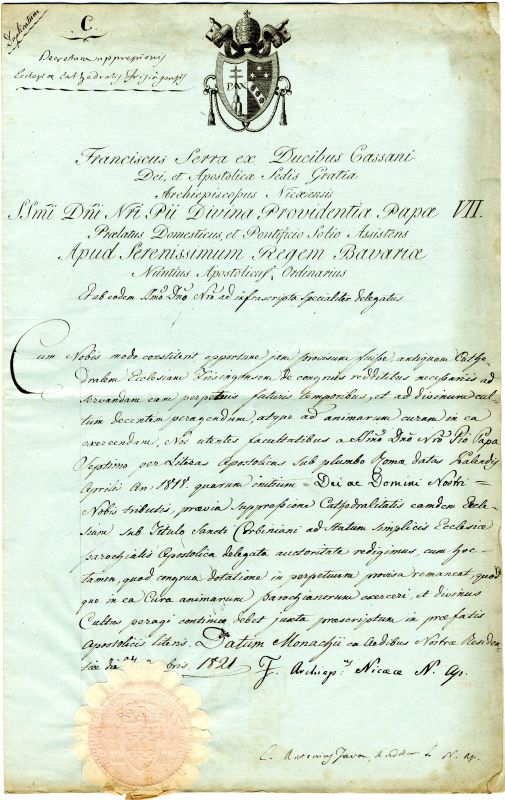 Duplicatum
C.
Decretum suppressionis
Ecclesiæ Cathedralis Frisingensis
PAX
Franciscus Serra ex Ducibus Cassani
Dei, et Apostolicæ Sedis Gratia
Archiepiscopus Nicæensis
SSm̄i Dn̄i Nr̄i Pii Divina Providentia Papæ VII.
Prælatus Domesticus, et Pontificio Solio Assistens
Apud Serenissimum Regem Bavariæ
Nuntius Apostolicus Ordinarius
Et ab eodem SSmo Dno Nro ad infrascripta specialiter delegatus
Cum Nobis modo constiterit opportune jam provisum fuisse antiquam Cathe-
dralem Ecclesiam Frisengensem de congruis redditibus necessariis ad
servandam eam perpetuis futuris temporibus, et ad divinum cul-
tum decentem peragendum, atque ad animarum curam in ea
exercendam, Nos utentes facultatibus a SSmo Dno Nro Pio Papa
Septimo per Literas Apostolicas sub plumbo Romæ datas Kalendis
Aprilis An: 1818. quarum initium = Dei ac Domini Nostri =
Nobis tributis, prævia suppressione Cathedralitatis eamdem Eccle-
siam sub Titulo Sancti Corbiniani ad Statum simplicis Ecclesiæ
parochialis Apostolica delegata auctoritate redigimus, cum hoc
tamen, quod congrua dotatione in perpetuum provisa remaneat, quod
que in ea Cura animarum parochianorum exerceri, et divinus
Cultus peragi continuo debet juxta præscriptum in præfatis
Apostolicis literis. Datum Monachii ex Aedibus Nostræ Residen-
tiæ die bris 1821
F. Archiep.us Nicææ N. Ap.
C. Antonius Auditor N. Ap.